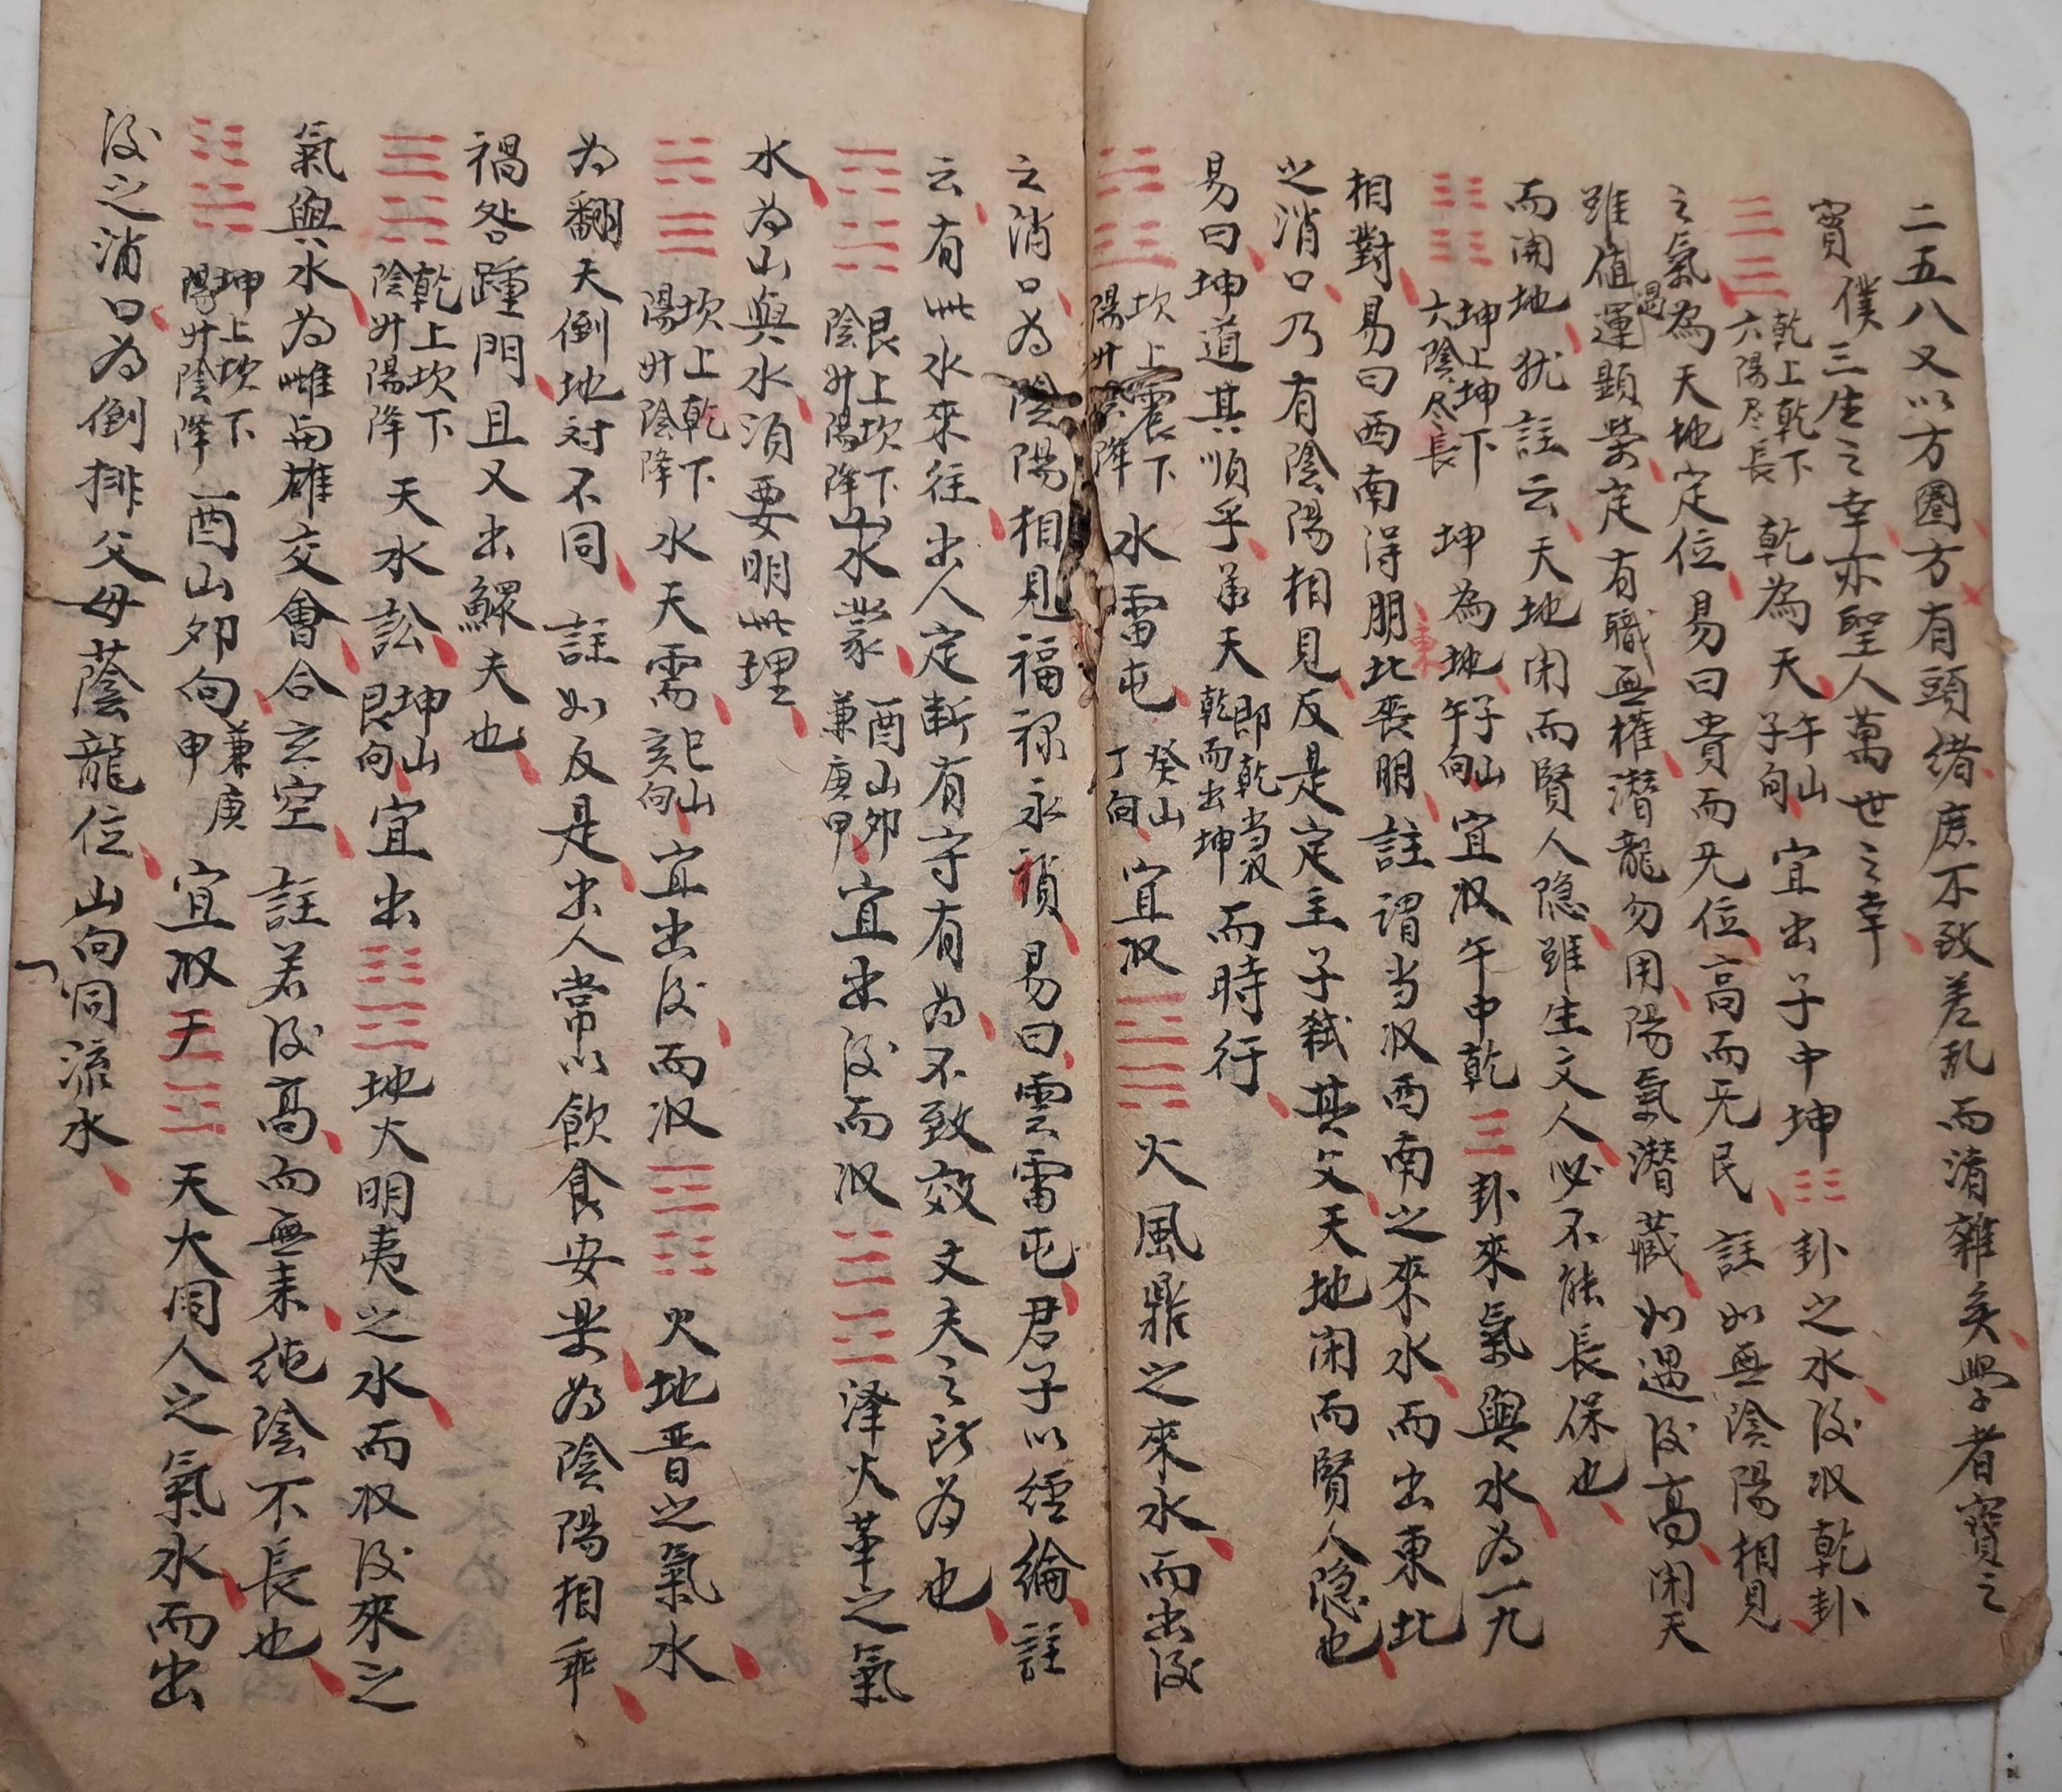 二五八又以方圈方有頭緒庶不致差乱而淆雜矣學者寶之
寶 僕三生之幸亦聖人萬世之幸
乾上乾下六陽尽長 乾為天 午山子向 宜出子中坤 卦之水 後収乾卦
之氣為天地定位 易曰貴而旡位高而旡民 註如無陰陽相見
雖值運顯柴定有職無權潛龍勿用陽氣潛藏 如遇後高闭天
而開地 犹註云天地闭而賢人隐雖生文人必不能長保也
坤上坤下六陰尽長 坤為地 子山午向 宜収午中乾 卦來氣與水為一九
相對 易曰西南得朋東北丧朋 註謂当収西南之來水而出東北
之消口乃有陰陽相見反是定主子弒其父天地闭而賢人隐也
易曰坤道其順乎 承天 即乾当収乾而出坤 而時行
坎上震下陽升陰降 水雷屯 癸山丁向 宜収 火風鼎之來水而出後
之消口為陰陽相見福禄永禎 易曰雲雷屯君子以經綸 註
云有此水來往出人定断有守有為不致效文夫之所為也
艮上坎下陰升陽降 山水蒙 酉山夘向兼庚甲 宜出後而収 澤火革之氣
水為山與水須要明此理
坎上乾下陽升陰降 水天需 巳山亥向 宜出後而収 火地晋之氣水
為翻天倒地对不同 註如反是出人常以飲食安楽為陰陽相乖
禍咎踵門且又出鰥夫也
乾上坎下陰升陽降 天水訟 坤山艮向 宜出 地火明夷之水而収後來之
氣與水為雌与雄交會合玄空 註若後高而無耒純陰不長也
坤上坎下陽升陰降 酉山夘向兼庚申 宜収天 天火同人之氣水而出
後之消口為倒排父母蔭龍位山向同流水